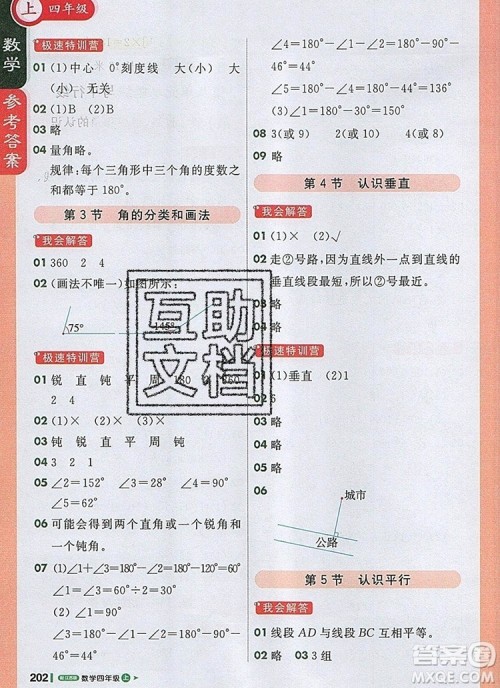 上 四年级
数学
参考答案
极速特训营
01 (1)中心 0°刻度线 大(小) 大
(小) 无关
02 (1)B (2)B
03 略
04 量角略。
规律:每个三角形中三个角的度数之
和都等于180°。
第 3 节 角的分类和画法
我会解答
01 360 2 4
02 (画法不唯一)如图所示:
75°
145°
极速特训营
01 锐 直 钝 平 周 180 360
2 4
02 (1)× (2)× (3)√
03 钝 锐 直 平 周 钝
04 3 2 1
05 ∠2=30° ∠3=60° ∠4=90°
∠5=60°
06 可能会得到两个直角或一个锐角和
一个钝角。
07 (1)∠1+∠2+∠3=180°
∠1=∠2=∠3=180°÷3=60°
(2)∠1=∠2=180°÷2=90°
∠4=180°-∠1-∠3=180°-
90°-44°=46°
∠5=180°-∠4=180°-46°=134°
∠6=180°-∠5=180°-134°=46°
08 3(或 9) 10 4(或 8)
第 4 节 认识垂直
我会解答
01 (1)× (2)√
02 走②号路,因为直线外一点到直线的
垂直线段最短,所以②号最近。
03 略
04 略
极速特训营
01 (1)垂直 (2)1
02 略
03 略
04 略
05 略
06
城市
公路
第 5 节 认识平行
我会解答
01 线段 AD 与线段 BC 互相平行。
02 略 03 3组
互助
文档
202 数学四年级 上
答案圈
MXQE.COM